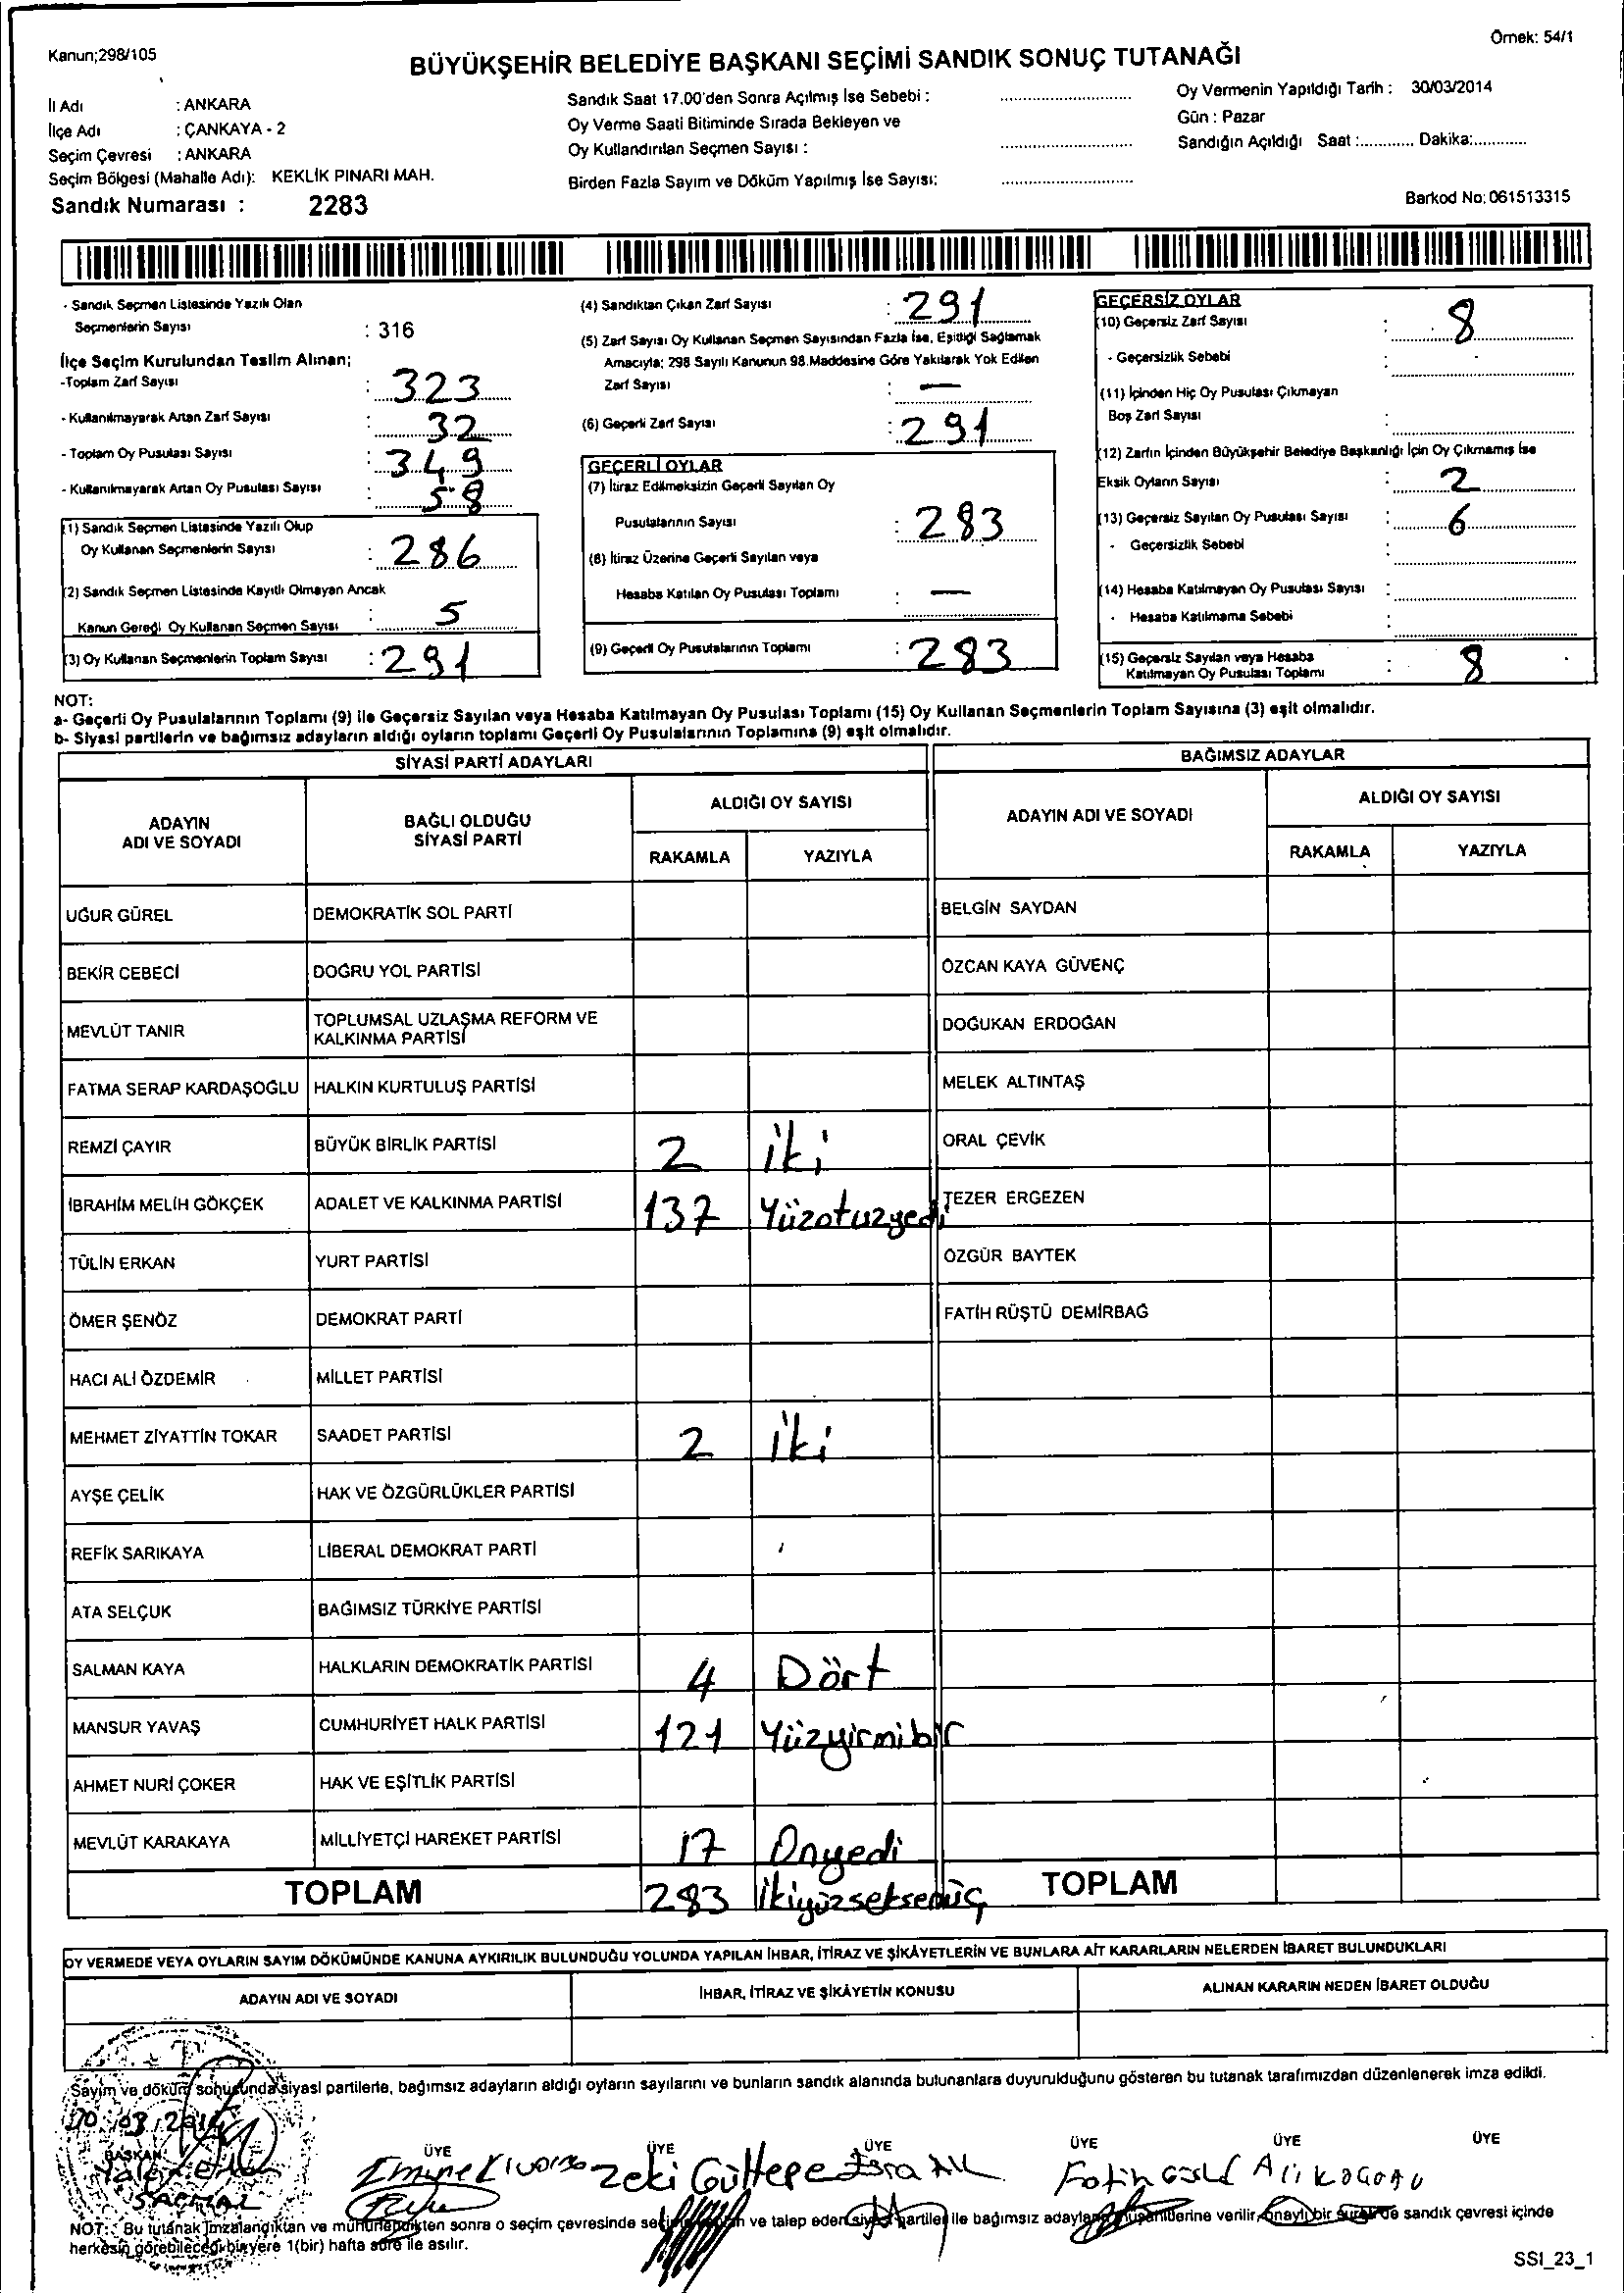 Kanun;298/105
Örnek: 54/1
BÜYÜKŞEHİR BELEDİYE BAŞKANI SEÇİMİ SANDIK SONUÇ TUTANAĞI
İl Adı : ANKARA
İlçe Adı : ÇANKAYA - 2
Seçim Çevresi : ANKARA
Seçim Bölgesi (Mahalle Adı): KEKLİK PINARI MAH.
Sandık Numarası : 2283
Sandık Saat 17.00'den Sonra Açılmış İse Sebebi :
Oy Verme Saati Bitiminde Sırada Bekleyen ve
Oy Kullandırılan Seçmen Sayısı :
Birden Fazla Sayım ve Döküm Yapılmış İse Sayısı:
Oy Vermenin Yapıldığı Tarih : 30/03/2014
Gün : Pazar
Sandığın Açıldığı Saat :............ Dakika:............
Barkod No: 061513315
- Sandık Seçmen Listesinde Yazılı Olan
Seçmenlerin Sayısı : 316
İlçe Seçim Kurulundan Teslim Alınan;
-Toplam Zarf Sayısı : 323
- Kullanılmayarak Artan Zarf Sayısı : 32
- Toplam Oy Pusulası Sayısı : 349
- Kullanılmayarak Artan Oy Pusulası Sayısı : 58
(1) Sandık Seçmen Listesinde Yazılı Olup
Oy Kullanan Seçmenlerin Sayısı : 286
(2) Sandık Seçmen Listesinde Kayıtlı Olmayan Ancak
Kanun Gereği Oy Kullanan Seçmen Sayısı : 5
(3) Oy Kullanan Seçmenlerin Toplam Sayısı : 291
(4) Sandıktan Çıkan Zarf Sayısı : 291
(5) Zarf Sayısı Oy Kullanan Seçmen Sayısından Fazla İse, Eşitliği Sağlamak
Amacıyla; 298 Sayılı Kanunun 98.Maddesine Göre Yakılarak Yok Edilen
Zarf Sayısı : —
(6) Geçerli Zarf Sayısı : 291
GEÇERLİ OYLAR
(7) İtiraz Edilmeksizin Geçerli Sayılan Oy
Pusulalarının Sayısı : 283
(8) İtiraz Üzerine Geçerli Sayılan veya
Hesaba Katılan Oy Pusulası Toplamı : —
(9) Geçerli Oy Pusulalarının Toplamı : 283
GEÇERSİZ OYLAR
(10) Geçersiz Zarf Sayısı : 8
- Geçersizlik Sebebi :
(11) İçinden Hiç Oy Pusulası Çıkmayan
Boş Zarf Sayısı :
(12) Zarfın İçinden Büyükşehir Belediye Başkanlığı İçin Oy Çıkmamış İse
Eksik Oyların Sayısı : 2
(13) Geçersiz Sayılan Oy Pusulası Sayısı : 6
- Geçersizlik Sebebi :
(14) Hesaba Katılmayan Oy Pusulası Sayısı :
- Hesaba Katılmama Sebebi :
(15) Geçersiz Sayılan veya Hesaba
Katılmayan Oy Pusulası Toplamı : 8
NOT:
a- Geçerli Oy Pusulalarının Toplamı (9) ile Geçersiz Sayılan veya Hesaba Katılmayan Oy Pusulası Toplamı (15) Oy Kullanan Seçmenlerin Toplam Sayısına (3) eşit olmalıdır.
b- Siyasi partilerin ve bağımsız adayların aldığı oyların toplamı Geçerli Oy Pusulalarının Toplamına (9) eşit olmalıdır.
SİYASİ PARTİ ADAYLARI
BAĞIMSIZ ADAYLAR
ADAYIN ADI VE SOYADI
BAĞLI OLDUĞU SİYASİ PARTİ
ALDIĞI OY SAYISI
RAKAMLA YAZIYLA
ADAYIN ADI VE SOYADI
ALDIĞI OY SAYISI
RAKAMLA YAZIYLA
UĞUR GÜREL DEMOKRATİK SOL PARTİ BELGİN SAYDAN
BEKİR CEBECİ DOĞRU YOL PARTİSİ ÖZCAN KAYA GÜVENÇ
MEVLÜT TANIR TOPLUMSAL UZLAŞMA REFORM VE KALKINMA PARTİSİ DOĞUKAN ERDOĞAN
FATMA SERAP KARDAŞOĞLU HALKIN KURTULUŞ PARTİSİ MELEK ALTINTAŞ
REMZİ ÇAYIR BÜYÜK BİRLİK PARTİSİ 2 iki ORAL ÇEVİK
İBRAHİM MELİH GÖKÇEK ADALET VE KALKINMA PARTİSİ 137 Yüzotuzyedi TEZER ERGEZEN
TÜLİN ERKAN YURT PARTİSİ ÖZGÜR BAYTEK
ÖMER ŞENÖZ DEMOKRAT PARTİ FATİH RÜŞTÜ DEMİRBAĞ
HACI ALİ ÖZDEMİR MİLLET PARTİSİ
MEHMET ZİYATTİN TOKAR SAADET PARTİSİ 2 iki
AYŞE ÇELİK HAK VE ÖZGÜRLÜKLER PARTİSİ
REFİK SARIKAYA LİBERAL DEMOKRAT PARTİ
ATA SELÇUK BAĞIMSIZ TÜRKİYE PARTİSİ
SALMAN KAYA HALKLARIN DEMOKRATİK PARTİSİ 4 Dört
MANSUR YAVAŞ CUMHURİYET HALK PARTİSİ 121 Yüzyirmibir
AHMET NURİ ÇOKER HAK VE EŞİTLİK PARTİSİ
MEVLÜT KARAKAYA MİLLİYETÇİ HAREKET PARTİSİ 17 Onyedi
TOPLAM 283 ikiyüzseksenüç TOPLAM
OY VERMEDE VEYA OYLARIN SAYIM DÖKÜMÜNDE KANUNA AYKIRILIK BULUNDUĞU YOLUNDA YAPILAN İHBAR, İTİRAZ VE ŞİKÂYETLERİN VE BUNLARA AİT KARARLARIN NELERDEN İBARET BULUNDUKLARI
ADAYIN ADI VE SOYADI İHBAR, İTİRAZ VE ŞİKÂYETİN KONUSU ALINAN KARARIN NEDEN İBARET OLDUĞU
Sayım ve döküm sonucunda siyasi partilerle, bağımsız adayların aldığı oyların sayılarını ve bunların sandık alanında bulunanlara duyurulduğunu gösteren bu tutanak tarafımızdan düzenlenerek imza edildi.
BAŞKAN ÜYE ÜYE ÜYE ÜYE ÜYE ÜYE
Emine Zeki Gültepe Esra Fatih Ali
NOT: Bu tutanak imzalandıktan ve mühürlendikten sonra o seçim çevresinde ve talep eden siyasi partiler ile bağımsız adayların müşahitlerine verilir, onaylı bir sureti de sandık çevresi içinde
herkesin görebileceği bir yere 1(bir) hafta süre ile asılır.
SSI_23_1